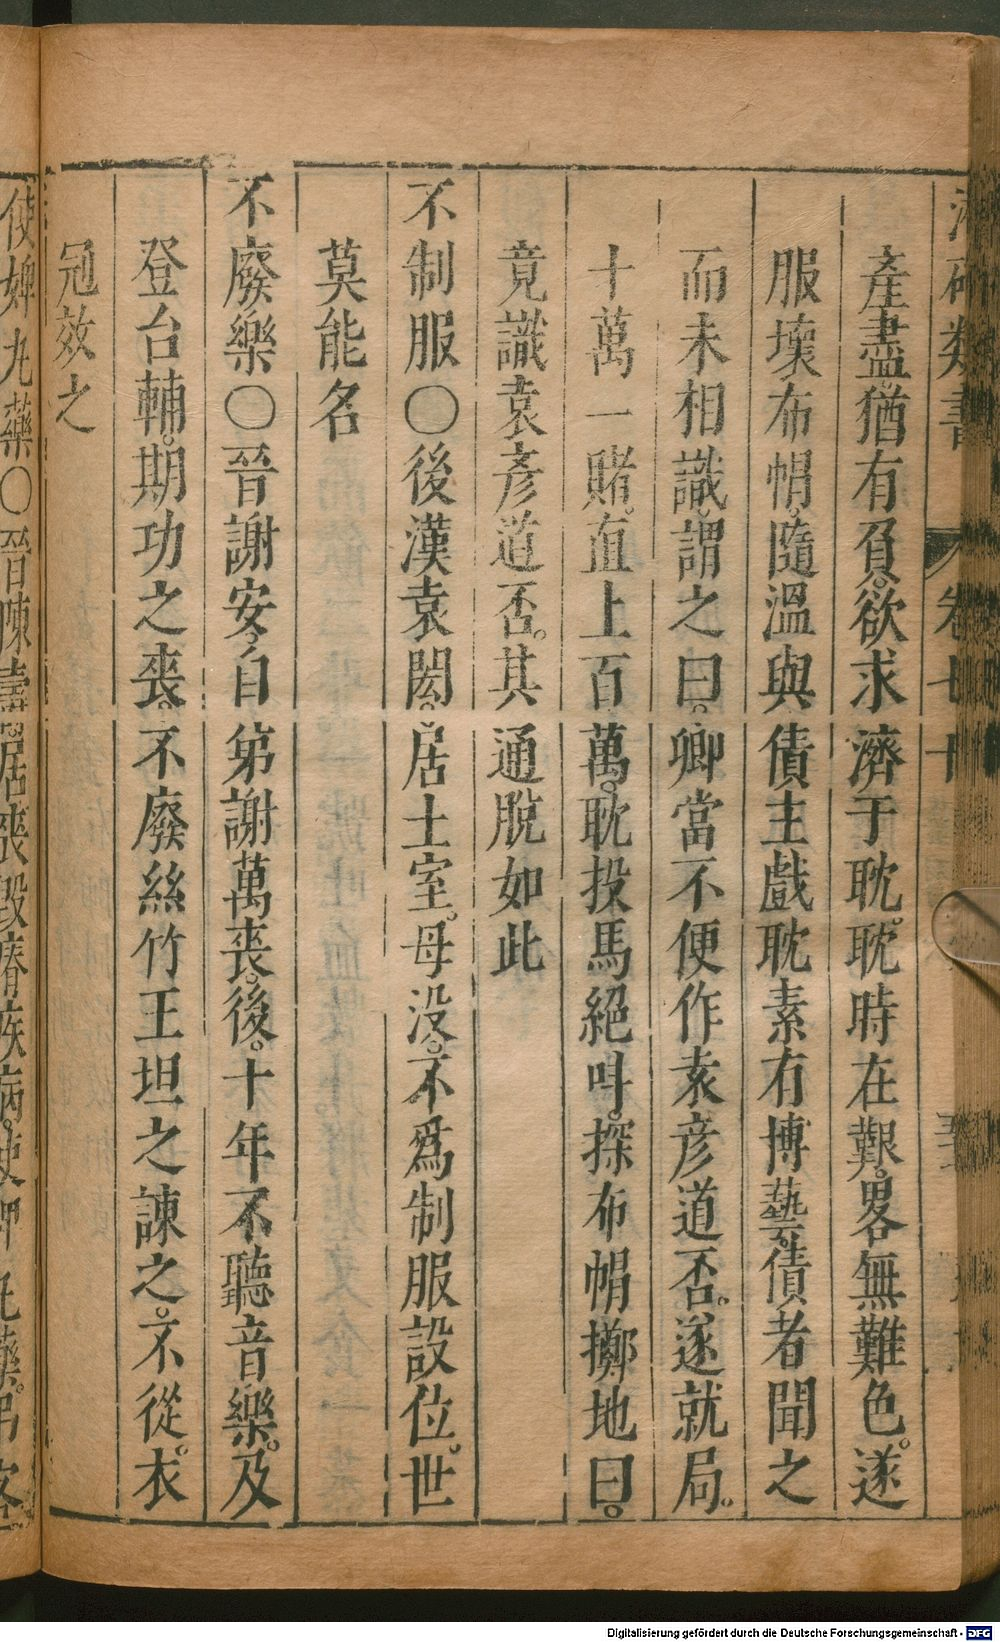 卷七十
產盡。猶有負。欲求濟于耽。耽時在艱。畧無難色。遂
服壞布帽。隨溫與債主戲耽素有博藝。債者聞之
而未相識。謂之曰。卿當不便作袁彥道否。遂就局。
十萬一賭。直上百萬。耽投馬絕呌。探布帽擲地曰。
竟識袁彥道否。其通脫如此
不制服〇後漢袁閎。居土室。母没。不爲制服設位。世
莫能名
不廢樂〇晉謝安。自第謝萬喪。後。十年不聽音樂。及
登台輔。期功之喪。不廢絲竹王坦之諫之。不從。衣
冠效之
使婢丸藥〇晉陳壽。居喪
Digitalisierung gefördert durch die Deutsche Forschungsgemeinschaft - DFG